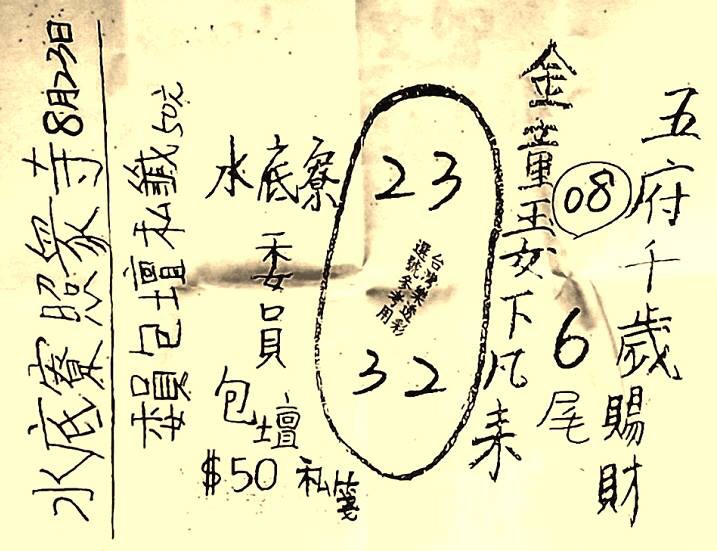 五府千歲賜財
金童玉女下凡來
08
6尾
23
台灣樂透彩
選號參考用
32
水底寮
委員
包壇
$50 私箋
委員包壇私籤50元
水底寮照眾寺8月23日